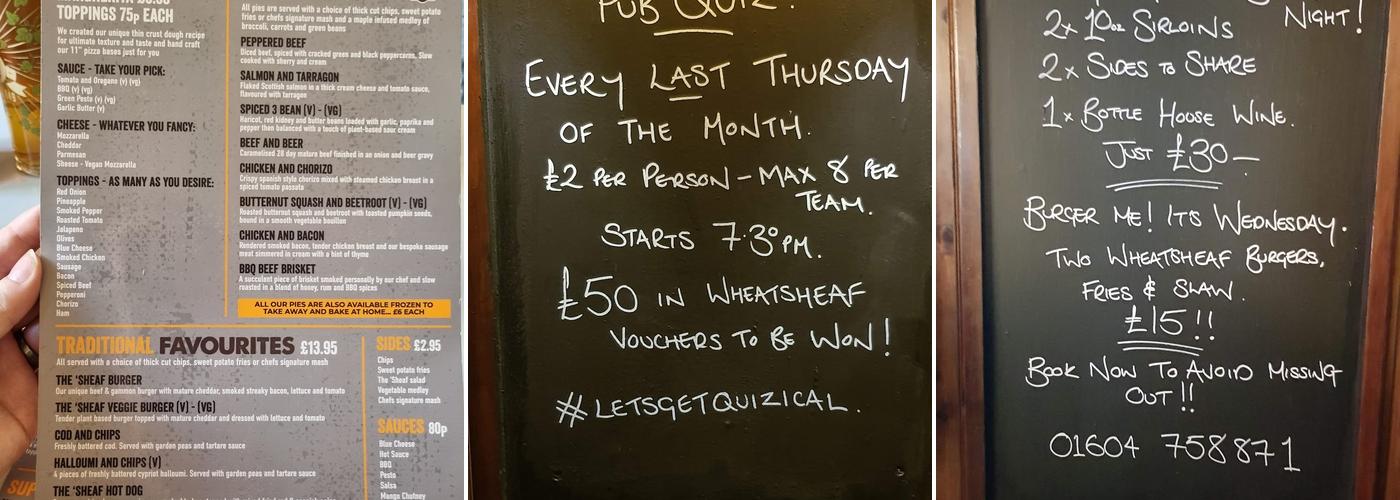 TOPPINGS 75p EACH
We created our unique thin crust dough recipe
for ultimate texture and taste and hand craft
our 11" pizza bases just for you
SAUCE - TAKE YOUR PICK:
Tomato and Oregano (v) (vg)
BBQ (v) (vg)
Green Pesto (v) (vg)
Garlic Butter (v)
CHEESE - WHATEVER YOU FANCY:
Mozzarella
Cheddar
Parmesan
Sheese - Vegan Mozzarella
TOPPINGS - AS MANY AS YOU DESIRE:
Red Onion
Pineapple
Smoked Pepper
Roasted Tomato
Jalapeno
Olives
Blue Cheese
Smoked Chicken
Sausage
Bacon
Spiced Beef
Pepperoni
Chorizo
Ham
All pies are served with a choice of thick cut chips, sweet potato
fries or chefs signature mash and a maple infused medley of
broccoli, carrots and green beans
PEPPERED BEEF
Diced beef, spiced with cracked green and black peppercorns. Slow
cooked with sherry and cream
SALMON AND TARRAGON
Flaked Scottish salmon in a thick cream cheese and tomato sauce,
flavoured with tarragon
SPICED 3 BEAN (V) - (VG)
Haricot, red kidney and butter beans loaded with garlic, paprika and
pepper then balanced with a touch of plant-based sour cream
BEEF AND BEER
Caramelised 28 day mature beef finished in an onion and beer gravy
CHICKEN AND CHORIZO
Crispy spanish style chorizo mixed with steamed chicken breast in a
spiced tomato passata
BUTTERNUT SQUASH AND BEETROOT (V) - (VG)
Roasted butternut squash and beetroot with toasted pumpkin seeds,
bound in a smooth vegetable bouillon
CHICKEN AND BACON
Rendered smoked bacon, tender chicken breast and our bespoke sausage
meat simmered in cream with a hint of thyme
BBQ BEEF BRISKET
A succulent piece of brisket smoked personally by our chef and slow
roasted in a blend of honey, rum and BBQ spices
ALL OUR PIES ARE ALSO AVAILABLE FROZEN TO
TAKE AWAY AND BAKE AT HOME... £6 EACH
TRADITIONAL FAVOURITES £13.95
All served with a choice of thick cut chips, sweet potato fries or chefs signature mash
THE 'SHEAF BURGER
Our unique beef & gammon burger with mature cheddar, smoked streaky bacon, lettuce and tomato
THE 'SHEAF VEGGIE BURGER (V) - (VG)
Tender plant based burger topped with mature cheddar and dressed with lettuce and tomato
COD AND CHIPS
Freshly battered cod. Served with garden peas and tartare sauce
HALLOUMI AND CHIPS (V)
4 pieces of freshly battered cypriot halloumi. Served with garden peas and tartare sauce
THE 'SHEAF HOT DOG
SIDES £2.95
Chips
Sweet potato fries
The 'Sheaf salad
Vegetable medley
Chefs signature mash
SAUCES 80p
Blue Cheese
Hot Sauce
BBQ
Pesto
Salsa
Mango Chutney
PUB QUIZ!
EVERY LAST THURSDAY
OF THE MONTH.
£2 PER PERSON - MAX 8 PER
TEAM.
STARTS 7.30PM.
£50 IN WHEATSHEAF
VOUCHERS TO BE WON!
#LETSGETQUIZICAL.
NIGHT!
2x 10oz SIRLOINS
2x SIDES TO SHARE
1x BOTTLE HOUSE WINE.
JUST £30-
BURGER ME! IT'S WEDNESDAY.
TWO WHEATSHEAF BURGERS,
FRIES & SLAW.
£15!!
BOOK NOW TO AVOID MISSING
OUT!!
01604 758871